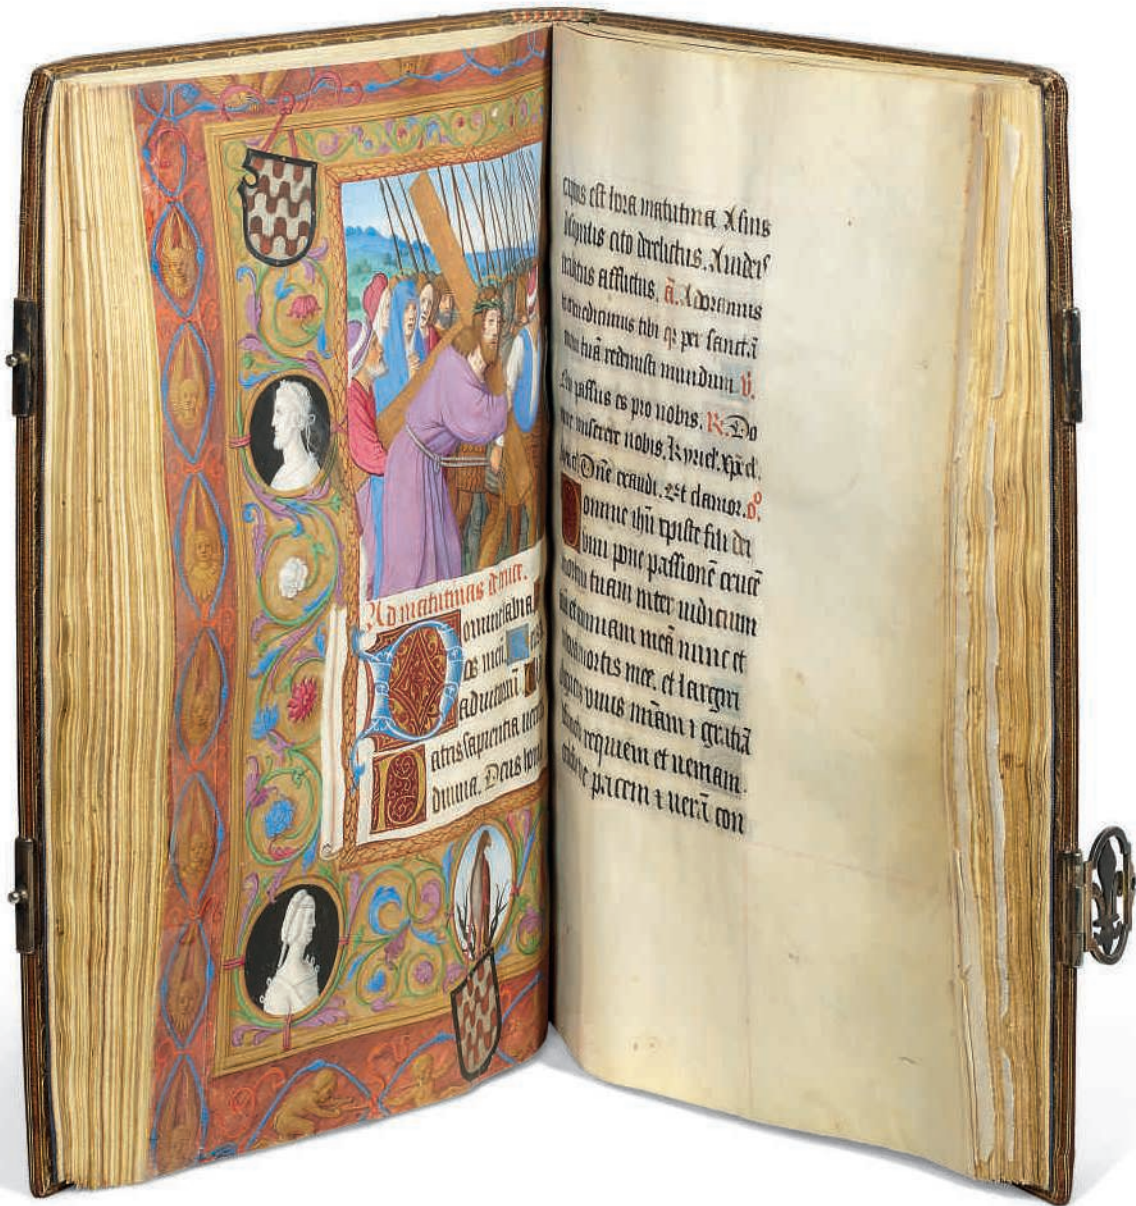 Ad matutinas de cruce.
Domine labia
es meu
ad uitoriu
Patris sapientia uerit
diuina. Deus homo
captus est hora matutina A suis
discipulis cito derelictus. A iudeis
traditus afflictus. a. Adoramus
te et benedicimus tibi qz per sanctā
tuā redemisti mundum v̄.
Qui passus es pro nobis. R. Do
mine miserere nobis. kyriel. xp̄el.
Dn̄e exaudi. Et clamor. o
Domine ih̄u xp̄iste fili dei
viui pone passionē crucē
mortē tuam inter iudicium
tuū et animam meā nunc et
in hora mortis mee. et largiri
digneris viuis m̄iam ⁊ gratiā
defunctis requiem et ueniam.
ecclesie pacem ⁊ uerā con